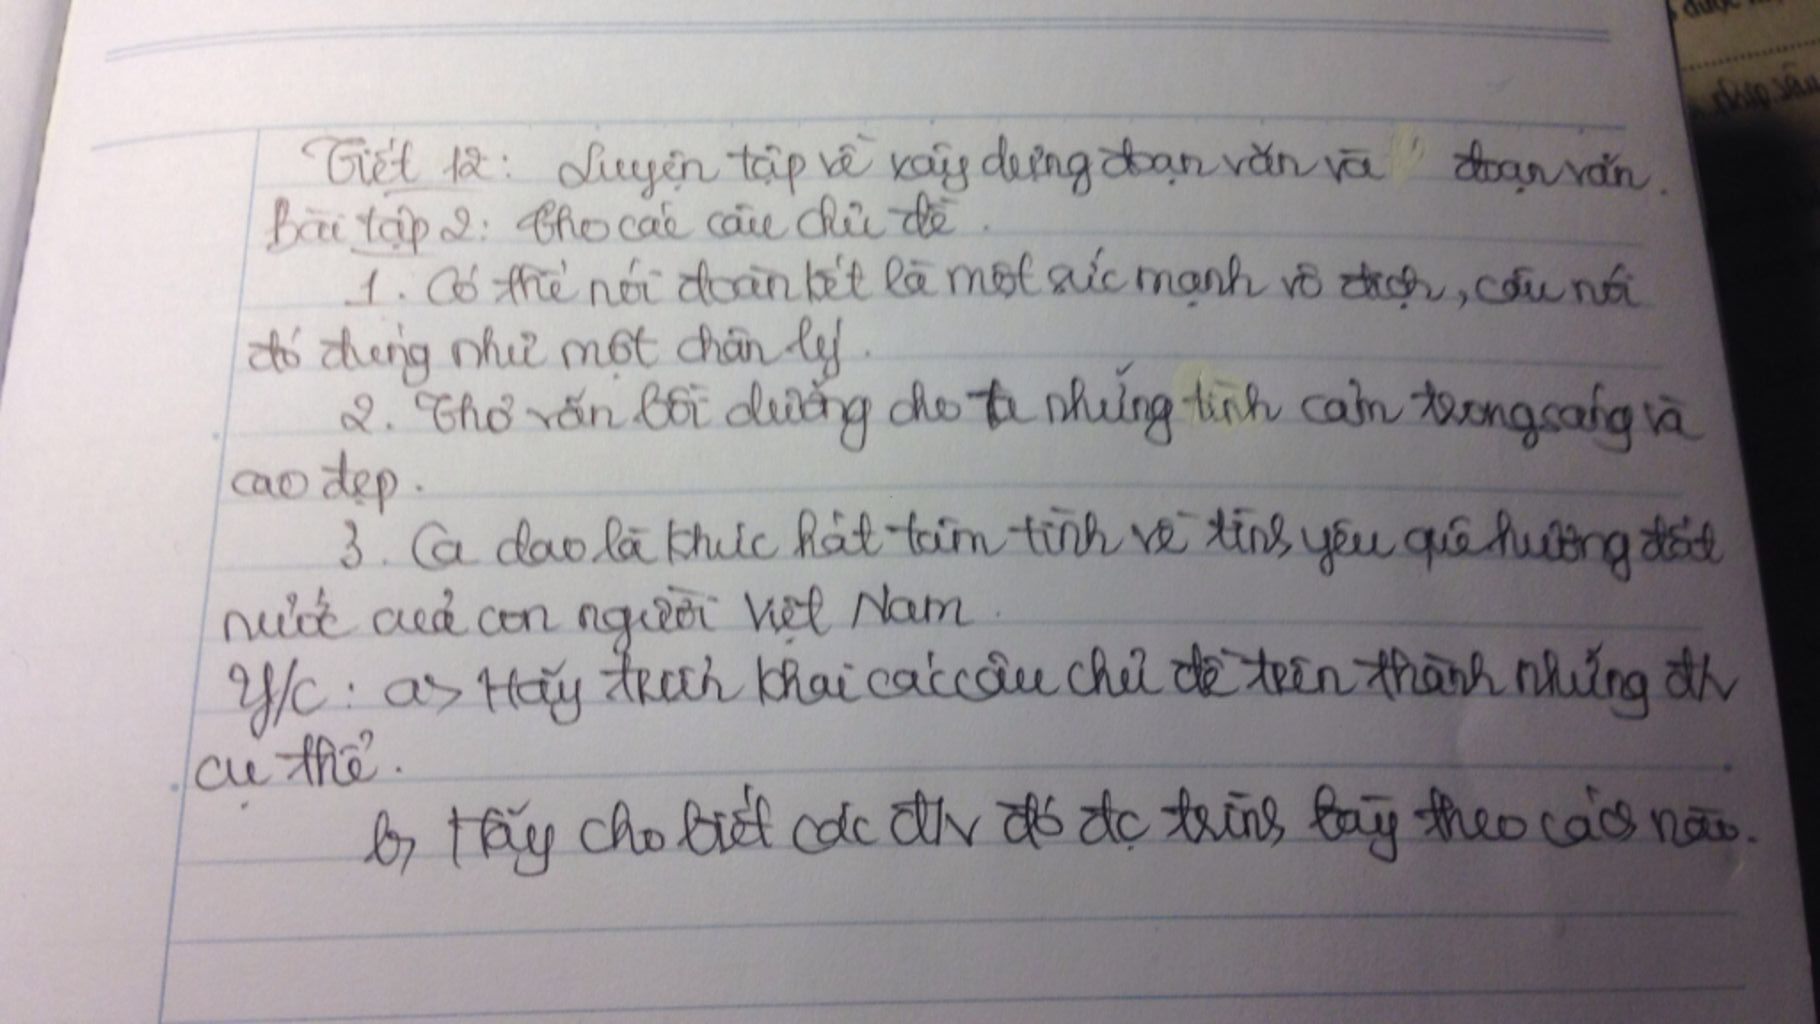 Tiết 12: Luyện tập về xây dựng đoạn văn và đoạn văn.
Bài tập 2: Cho các câu chủ đề.
1. Có thể nói đoàn kết là một sức mạnh vô địch, câu nói
đó đúng như một chân lý.
2. Thơ văn bồi dưỡng cho ta những tình cảm trong sáng và
cao đẹp.
3. Ca dao là khúc hát tâm tình về tình yêu quê hương đất
nước của con người Việt Nam.
Y/c: a> Hãy triển khai các câu chủ đề trên thành những đv
cụ thể.
b, Hãy cho biết các đv đó đc trình bày theo cách nào.
được